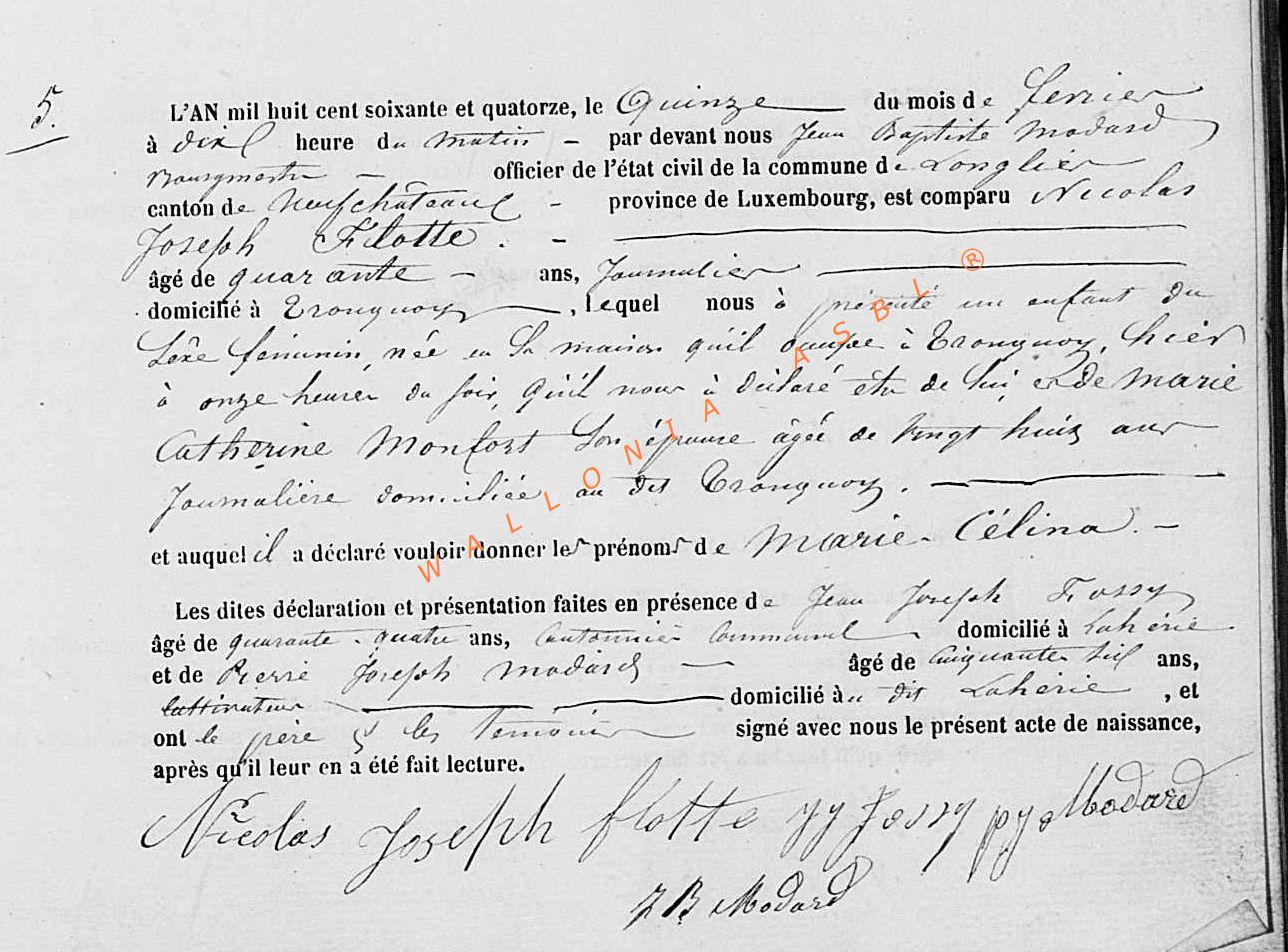 5.
L'AN mil huit cent soixante et quatorze, le Quinze du mois de fevrier
à dix heure du matin par devant nous Jean Baptiste Modard
Bourgmestre officier de l'état civil de la commune de Longlier
canton de Neufchâteau province de Luxembourg, est comparu Nicolas
Joseph Flotte.
âgé de quarante ans, Journalier
domicilié à Tronquoy, lequel nous à présenté un enfant du
Sexe féminin, née en Sa maison qu'il occupe à Tronquoy, hier
à onze heures du soir, qu'il nous à déclaré être de lui, et de Marie
Catherine Monfort Son épouse âgée de vingt huit ans
Journalière domiciliée au dit Tronquoy.
et auquel il a déclaré vouloir donner les prénoms de Marie-Célina.
Les dites déclaration et présentation faites en présence de Jean Joseph Fossy
âgé de quarante-quatre ans, Cantonnier Communal domicilié à Lahérie
et de Pierre Joseph Modard âgé de Cinquante six ans,
Cultivateur domicilié au dit Lahérie, et
ont le père & les témoins signé avec nous le présent acte de naissance,
après qu'il leur en a été fait lecture.
Nicolas Joseph flotte JJ Fossy PJ Modard
J B Modard
WALLONIA ASBL ®